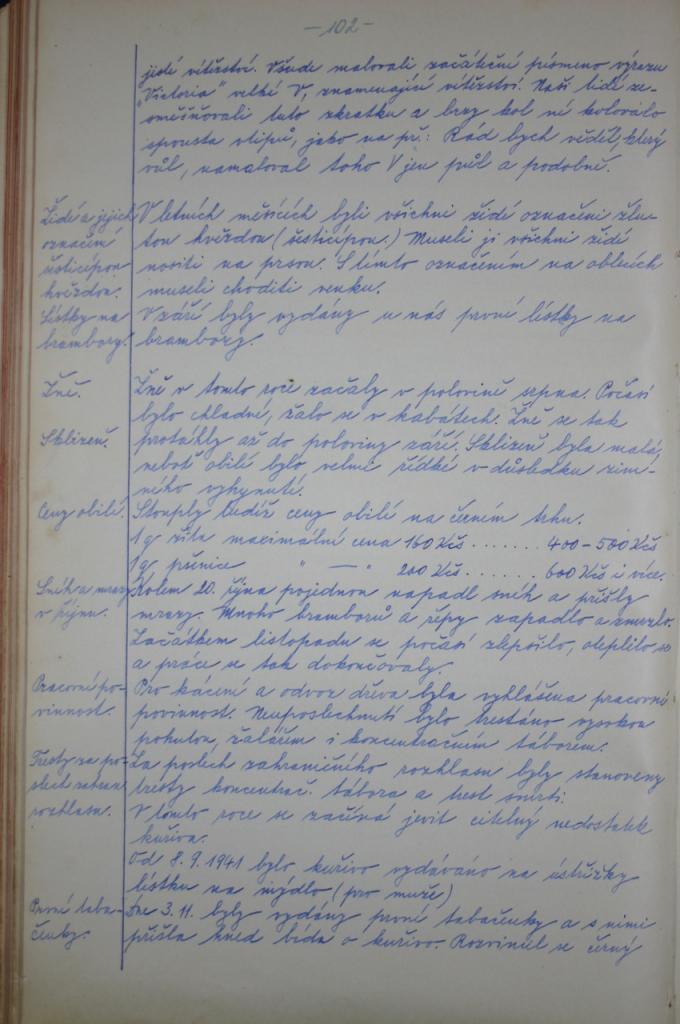 - 102 -
jejé vítězství. Všude malovali začáteční písmeno výrazu
"Victoria" velké V, znamenající vítězství. Naši lidé ze-
směšňovali tuto zkratku a brzy kol ní kolovalo
spousta vtipů, jako na př: Rád bych věděl, který
vůl, namaloval toho V jen půl a podobně.
Židé a jejich
označení
šesticípou
hvězdou.
V letních měsících byli všichni židé označeni žlu-
tou hvězdou (šesticípou.) Museli ji všichni židé
nositi na prsou. S tímto označením na oblecích
museli choditi venku.
Lístky na
brambory.
V září byly vydány u nás první lístky na
brambory.
Žně.
Žně v tomto roce začaly v polovině srpna. Počasí
bylo chladné, žalo se v kabátech. Žně se tak
protáhly až do poloviny září. Sklizeň byla malá,
Sklizeň.
neboť obilí bylo velmi řídké v důsledku zim-
ního vyhynutí.
Ceny obilí.
Stouply tudíž ceny obilí na černém trhu.
1 q žita maximální cena 160 Kčs ....... 400-500 Kčs
1 q pšenice " — " 200 Kčs ....... 600 Kčs i více.
Sníh a mrazy
v říjnu.
Kolem 20. října pojednou napadl sníh a přišly
mrazy. Mnoho bramborů a řepy zapadlo a zmrzlo.
Začátkem listopadu se počasí zlepšilo, oteplilo se
a práce se tak dokončovaly.
Pracovní po-
vinnost.
Pro kácení a odvoz dřeva byla vyhlášena pracovní
povinnost. Neuposlechnutí bylo trestáno vysokou
pokutou, žalářem i koncentračním táborem.
Tresty za po-
slech zahran.
rozhlasu.
Za poslech zahraničního rozhlasu byly stanoveny
tresty koncentrač. tábora a trest smrti.
V tomto roce se začíná jevit citelný nedostatek
kuřiva.
Od 8. 9. 1941 bylo kuřivo vydáváno na ústřižky
lístku na mýdlo (pro muže)
První taba-
čenky.
Dne 3. 11. byly vydány první tabačenky a s nimi
přišla hned bída o kuřivo. Rozvinul se černý